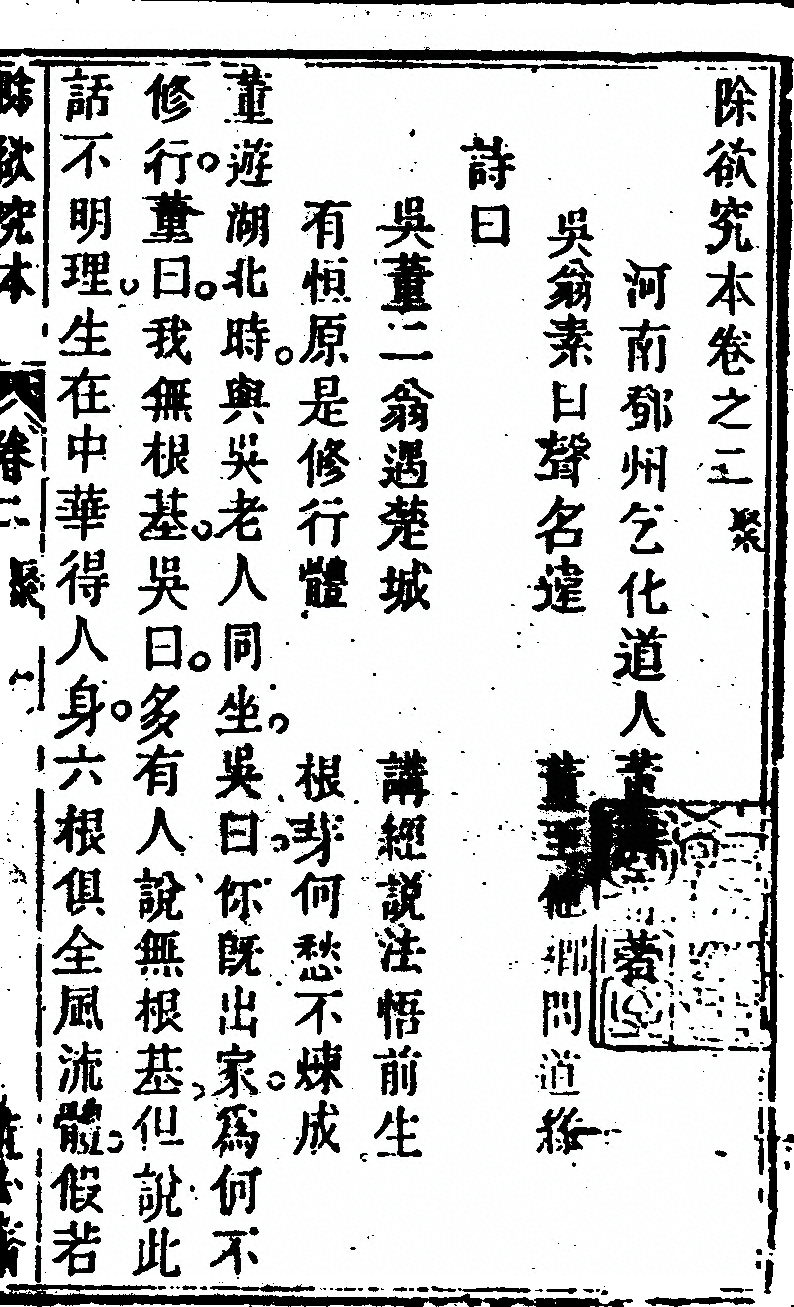 除欲究本卷之二 聚
河南鄧州乞化道人董 著
吳翁素日聲名達 董 他鄉問道
詩曰
吳董二翁遇楚城 講經說法悟前生
有恒原是修行體 根芽何愁不煉成
董遊湖北時。與吳老人同坐。吳曰。你既出家。為何不
修行。董曰。我無根基。吳曰。多有人說無根基。但說此
話不明理。生在中華得人身。六根俱全風流體。假若
除欲究本 卷二 聚